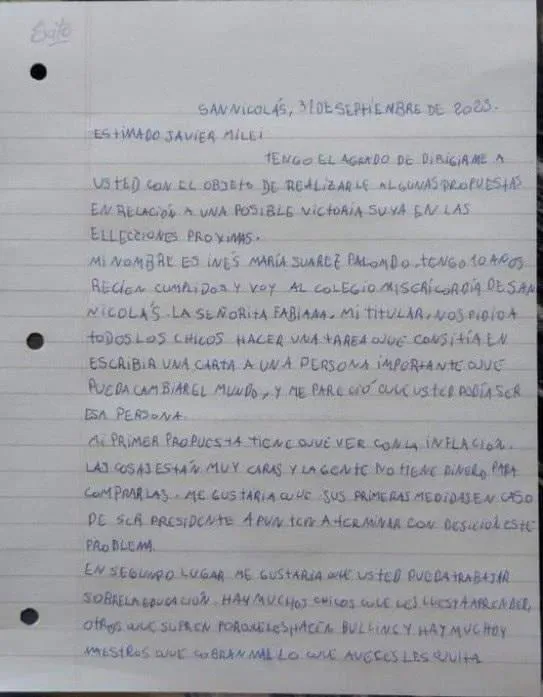 Éxito
SAN NICOLÁS, 31 DE SEPTIEMBRE DE 2023.
ESTIMADO JAVIER MILEI
TENGO EL AGRADO DE DIRIGIRME A
USTED CON EL OBJETO DE REALIZARLE ALGUNAS PROPUESTAS
EN RELACIÓN A UNA POSIBLE VICTORIA SUYA EN LAS
ELLECCIONES PROXIMAS.
MI NOMBRE ES INÉS MARÍA SUAREZ PALOMDO. TENGO 10 AÑOS
RECIEN CUMPLIDOS Y VOY AL COLEGIO MISERICORDIA DE SAN
NICOLÁS. LA SEÑORITA FABIANA, MI TITULAR, NOS PIDIO A
TODOS LOS CHICOS HACER UNA TAREA QUE CONSITÍA EN
ESCRIBIR UNA CARTA A UNA PERSONA IMPORTANTE QUE
PUEDA CAMBIAR EL MUNDO, Y ME PARECIÓ QUE USTED PODÍA SER
ESA PERSONA.
MI PRIMER PROPUESTA TIENE QUE VER CON LA INFLACION.
LAS COSAS ESTÁN MUY CARAS Y LA GENTE NO TIENE DINERO PARA
COMPRARLAS. ME GUSTARIA QUE SUS PRIMERAS MEDIDAS EN CASO
DE SER PRESIDENTE APUNTEN A TERMINAR CON DESICIOI ESTE
PROBLEMA.
EN SEGUNDO LUGAR ME GUSTARIA QUE USTED PUEDA TRABAJAR
SOBRE LA EDUCACIÓN. HAY MUCHOS CHICOS QUE LES CUESTA APRENDER,
OTROS QUE SUFREN PORQUE LES HACEN BULLING Y HAY MUCHOS
MAESTROS QUE COBRAN MAL LO QUE AVECES LES QUITA